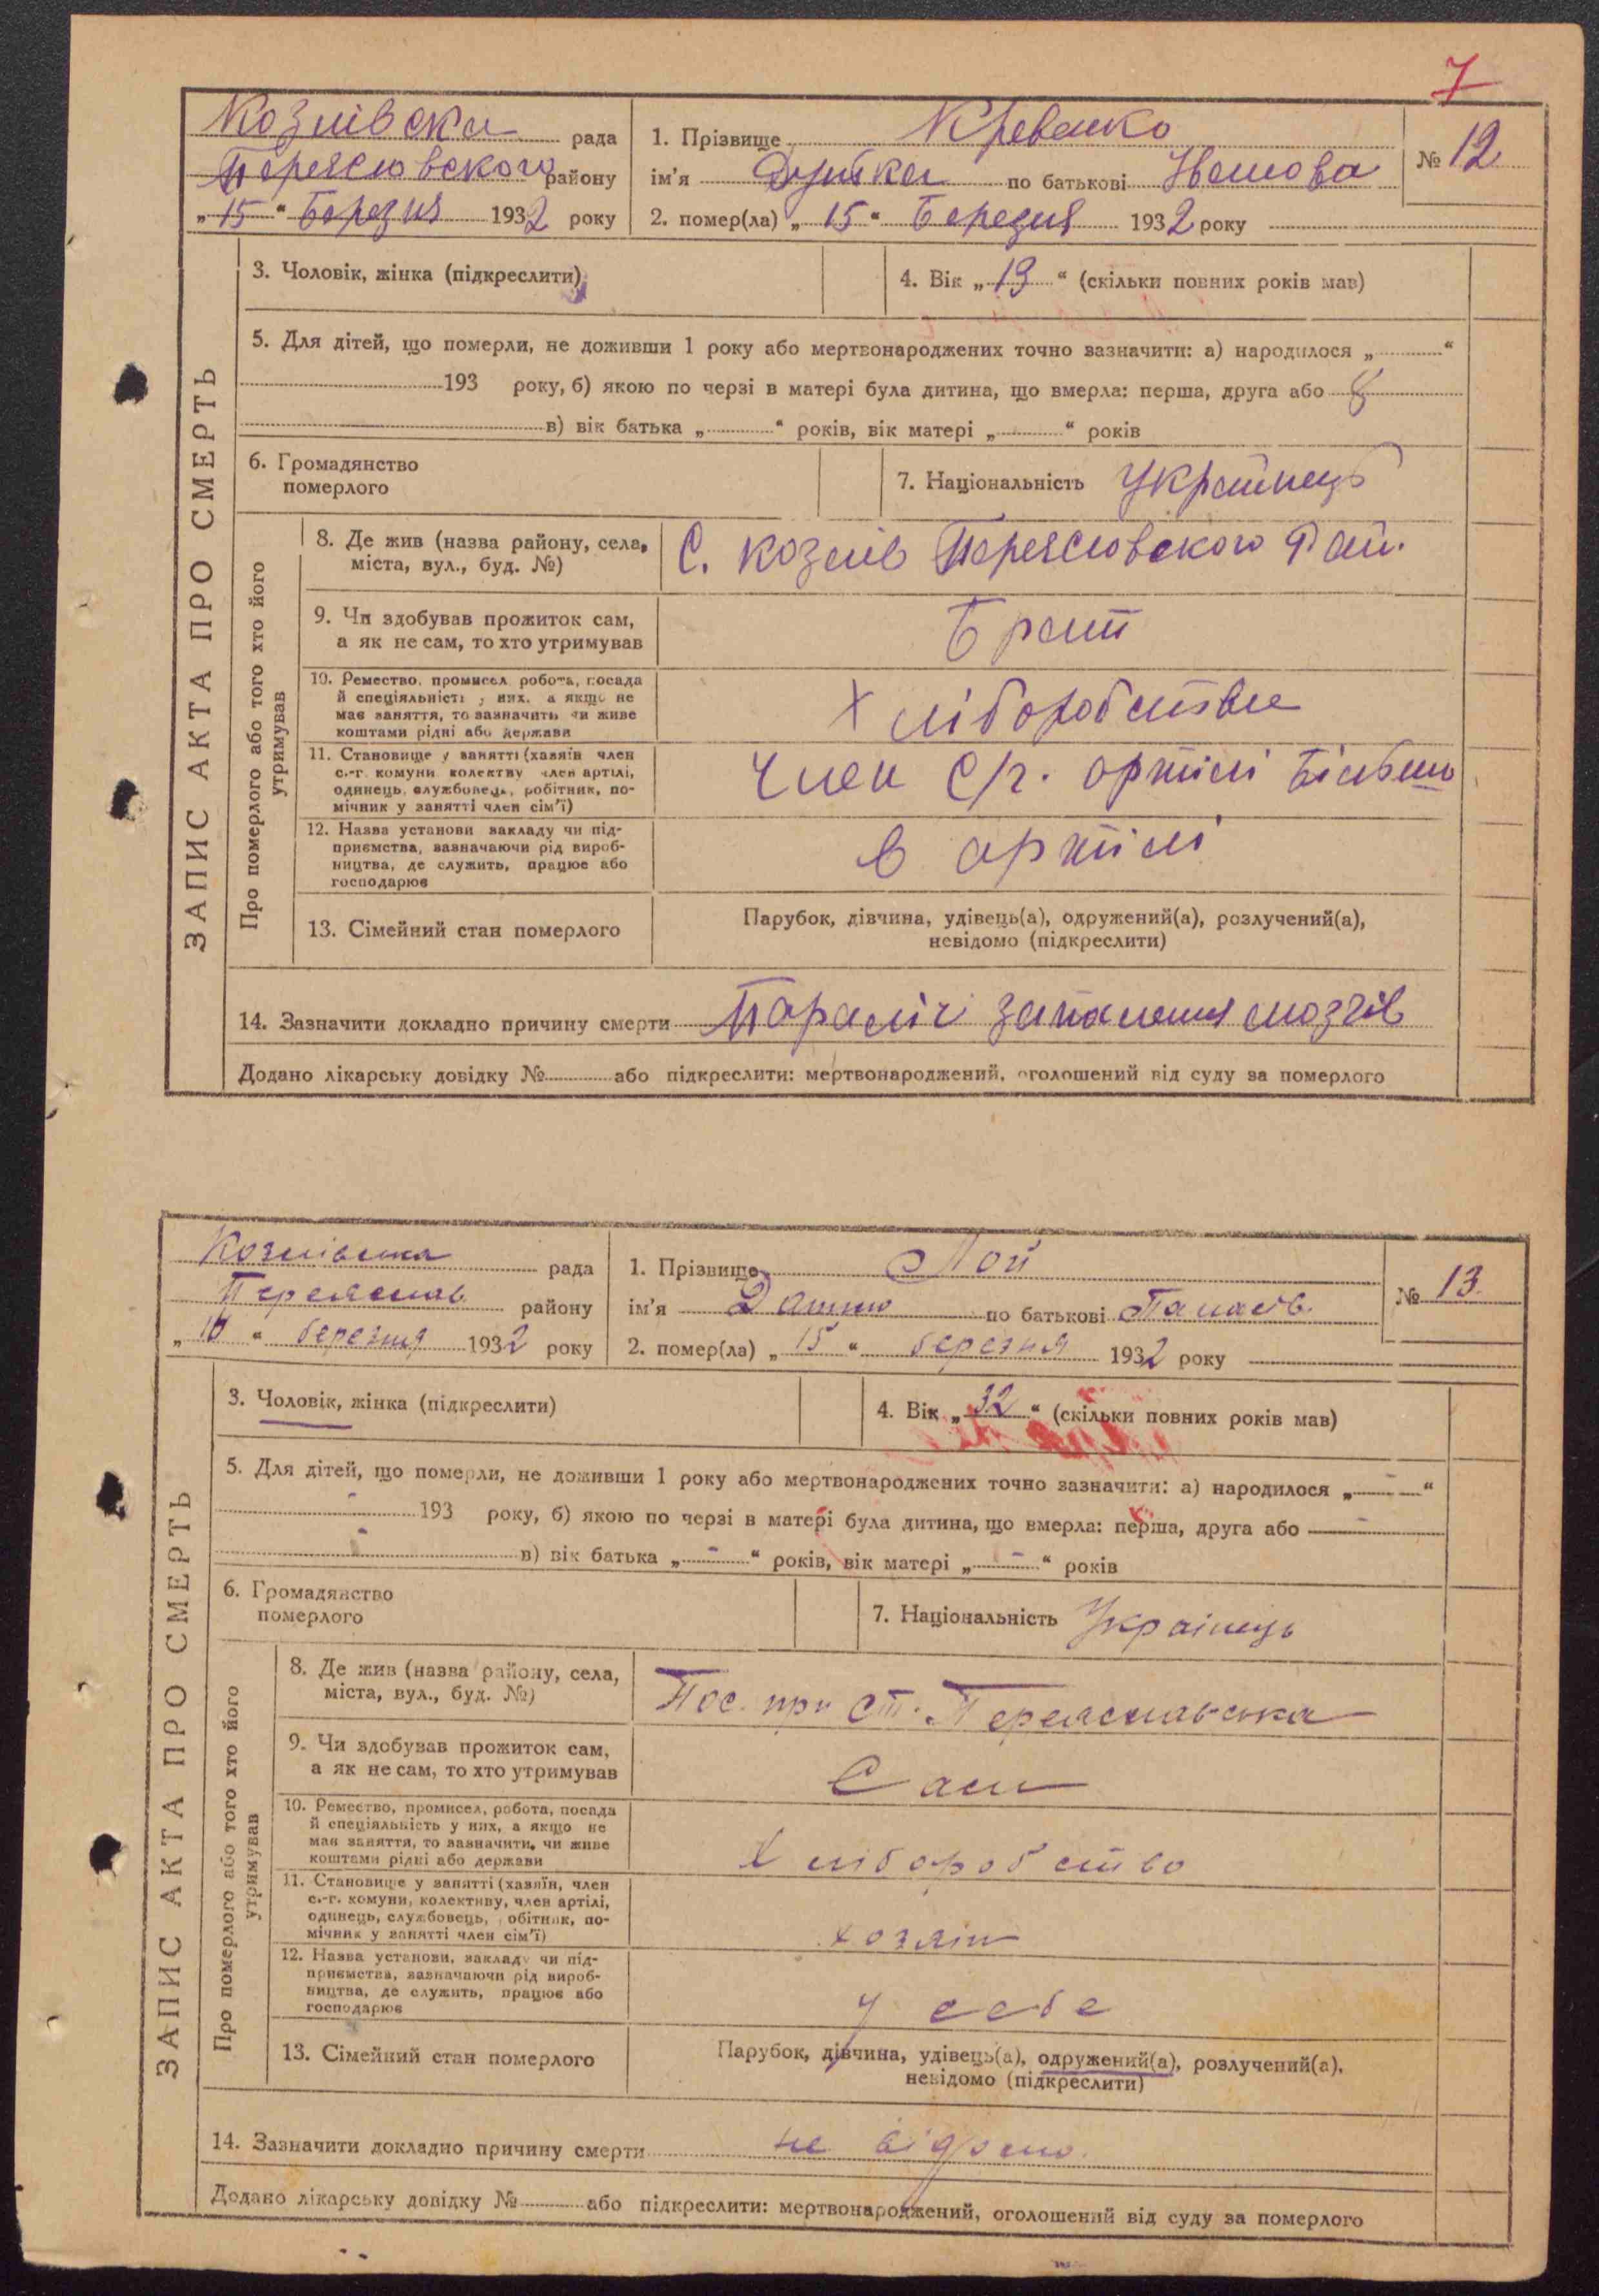 7
Козлівска рада
Переясловского району
„15“ Березня 1932 року
1. Прізвище Кревако
ім'я по батькові
№ 12
2. помер(ла) „15“ Березня 1932 року
3. Чоловік, жінка (підкреслити)
4. Вік „19“ (скільки повних років мав)
5. Для дітей, що померли, не доживши 1 року або мертвонароджених точно зазначити: а) народилося „ “
193 року, б) якою по черзі в матері була дитина, що вмерла: перша, друга або 8
в) вік батька „ “ років, вік матері „ “ років
6. Громадянство
померлого
7. Національність Українець
ЗАПИС АКТА ПРО СМЕРТЬ
Про померлого або того хто його
утримував
8. Де жив (назва району, села,
міста, вул., буд. №)
С. Козлів Переясловского Рай.
9. Чи здобував прожиток сам,
а як не сам, то хто утримував
Брат
10. Ремество, промисел робота, посада
й спеціяльність у них, а якщо не
має заняття, то зазначить чи живе
коштами рідні або держави
Хліборобство
11. Становище у занятті (хазяїн член
с.-г. комуни колективу член артілі,
одинець, службовець, робітник, по-
мічник у занятті член сім'ї)
Член С/г. артілі
12. Назва установи закладу чи під-
приємства, зазначаючи рід вироб-
ництва, де служить, працює або
господарює
в артілі
13. Сімейний стан померлого
Парубок, дівчина, удівець(а), одружений(а), розлучений(а),
невідомо (підкреслити)
14. Зазначити докладно причину смерти Параліч запалення мозгів
Додано лікарську довідку № або підкреслити: мертвонароджений, оголошений від суду за померлого
Козлівська рада
Переяслав. району
„16“ березня 1932 року
1. Прізвище Лой
ім'я Данило по батькові Панасів.
№ 13
2. помер(ла) „15“ березня 1932 року
3. Чоловік, жінка (підкреслити)
4. Вік „32“ (скільки повних років мав)
5. Для дітей, що померли, не доживши 1 року або мертвонароджених точно зазначити: а) народилося „-“
193 року, б) якою по черзі в матері була дитина, що вмерла: перша, друга або -
в) вік батька „-“ років, вік матері „-“ років
6. Громадянство
померлого
7. Національність Українець
ЗАПИС АКТА ПРО СМЕРТЬ
Про померлого або того хто його
утримував
8. Де жив (назва району, села,
міста, вул., буд. №)
Пос. при ст. Переяславська
9. Чи здобував прожиток сам,
а як не сам, то хто утримував
Сам
10. Ремество, промисел, робота, посада
й спеціяльність у них, а якщо не
має заняття, то зазначити, чи живе
коштами рідні або держави
Хліборобство
11. Становище у занятті (хазяїн, член
с.-г. комуни, колективу, член артілі,
одинець, службовець, робітник, по-
мічник у занятті член сім'ї)
хозяін
12. Назва установи, закладу чи під-
приємства, зазначаючи рід вироб-
ництва, де служить, працює або
господарює
у себе
13. Сімейний стан померлого
Парубок, дівчина, удівець(а), одружений(а), розлучений(а),
невідомо (підкреслити)
14. Зазначити докладно причину смерти не відомо.
Додано лікарську довідку № або підкреслити: мертвонароджений, оголошений від суду за померлого